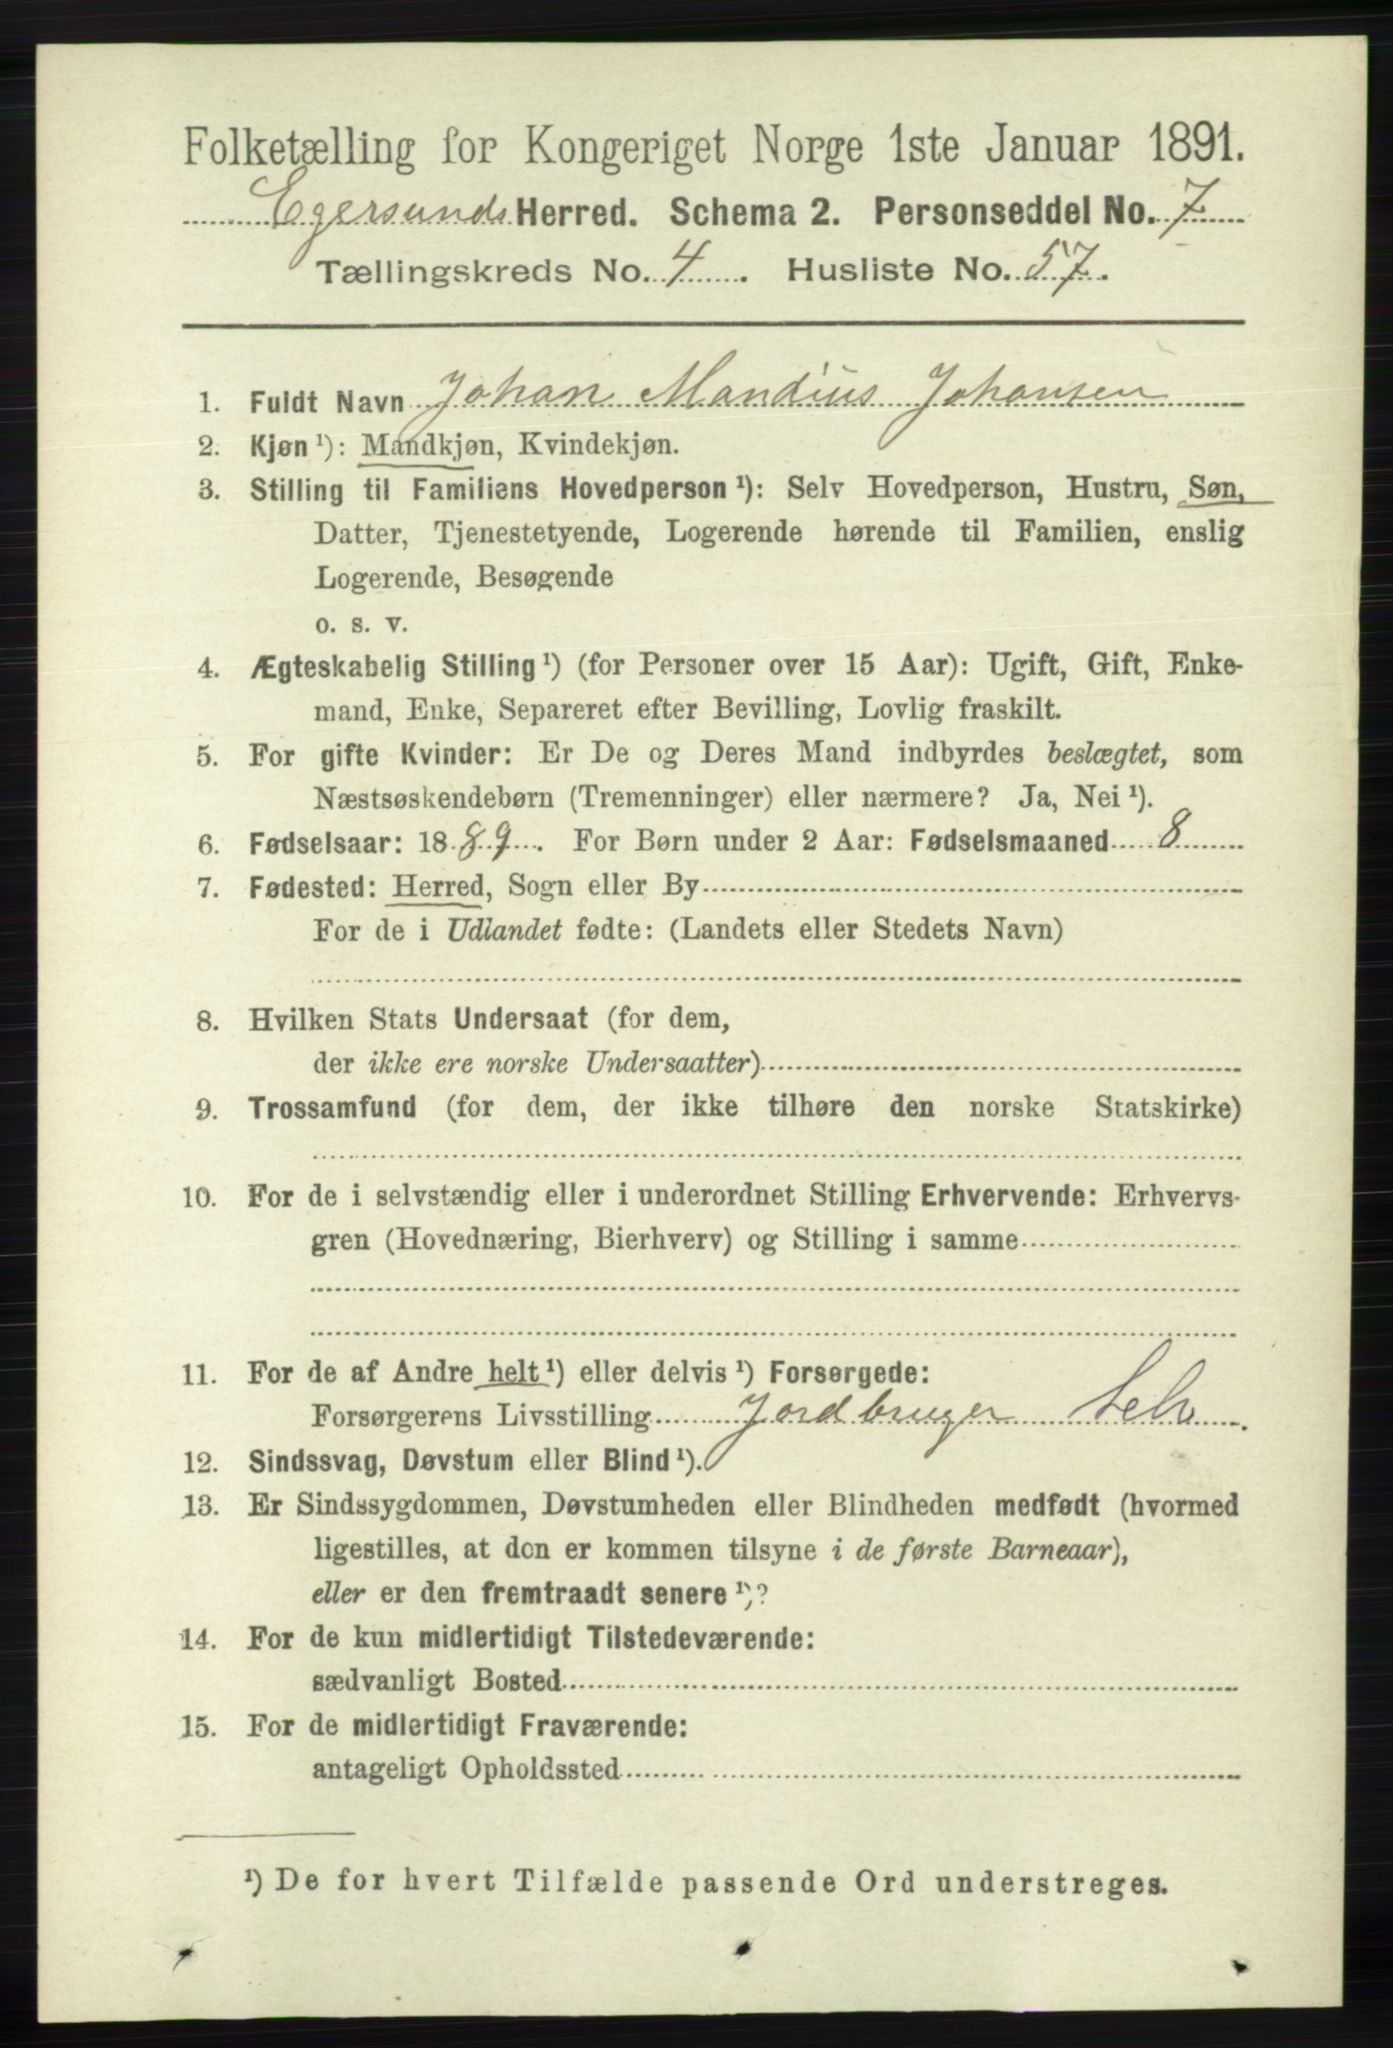 Folketælling for Kongeriget Norge 1ste Januar 1891.
Egersunds Herred. Schema 2. Personseddel No. 7
Tællingskreds No. 4. Husliste No. 57.
1. Fuldt Navn Johan Mandius Johansen
2. Kjøn ¹): Mandkjøn, Kvindekjøn.
3. Stilling til Familiens Hovedperson ¹): Selv Hovedperson, Hustru, Søn,
Datter, Tjenestetyende, Logerende hørende til Familien, enslig
Logerende, Besøgende
o. s. v.
4. Ægteskabelig Stilling ¹) (for Personer over 15 Aar): Ugift, Gift, Enke-
mand, Enke, Separeret efter Bevilling, Lovlig fraskilt.
5. For gifte Kvinder: Er De og Deres Mand indbyrdes beslægtet, som
Næstsøskendebørn (Tremenninger) eller nærmere? Ja, Nei ¹).
6. Fødselsaar: 1889. For Børn under 2 Aar: Fødselsmaaned 8
7. Fødested: Herred, Sogn eller By
For de i Udlandet fødte: (Landets eller Stedets Navn)
8. Hvilken Stats Undersaat (for dem,
der ikke ere norske Undersaatter)
9. Trossamfund (for dem, der ikke tilhøre den norske Statskirke)
10. For de i selvstændig eller i underordnet Stilling Erhvervende: Erhvervs-
gren (Hovednæring, Bierhverv) og Stilling i samme
11. For de af Andre helt ¹) eller delvis ¹) Forsørgede:
Forsørgerens Livsstilling Jordbruger Selv.
12. Sindssvag, Døvstum eller Blind ¹).
13. Er Sindssygdommen, Døvstumheden eller Blindheden medfødt (hvormed
ligestilles, at den er kommen tilsyne i de første Barneaar),
eller er den fremtraadt senere ¹)?
14. For de kun midlertidigt Tilstedeværende:
sædvanligt Bosted
15. For de midlertidigt Fraværende:
antageligt Opholdssted
¹) De for hvert Tilfælde passende Ord understreges.